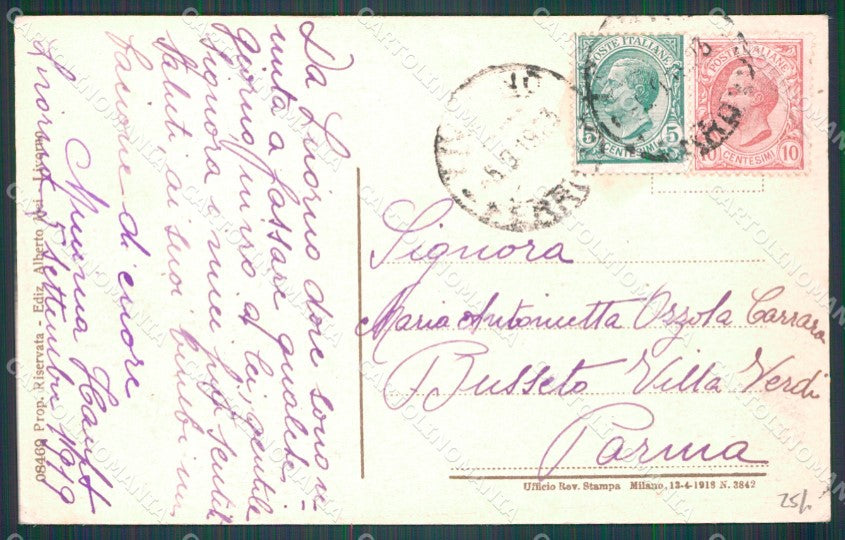 Da Livorno dove sono ve-
nuta a passare qualche
giorno, invio a Lei, gentile
Signora i miei più sentiti
saluti, ai suoi bimbi un
bacione di cuore
Livorno 5 Settembre 1919
08460 Prop. Riservata - Ediz. Alberto Livorno
POSTE ITALIANE
5 CENTESIMI 5
POSTE ITALIANE
10 CENTESIMI 10
Signora
Maria Antonietta Ozzola Carrara
Busseto Villa Verdi
Parma
Ufficio Rev. Stampa Milano, 13-4-1918 N. 3842
25/.
CARTOLINOMANIA